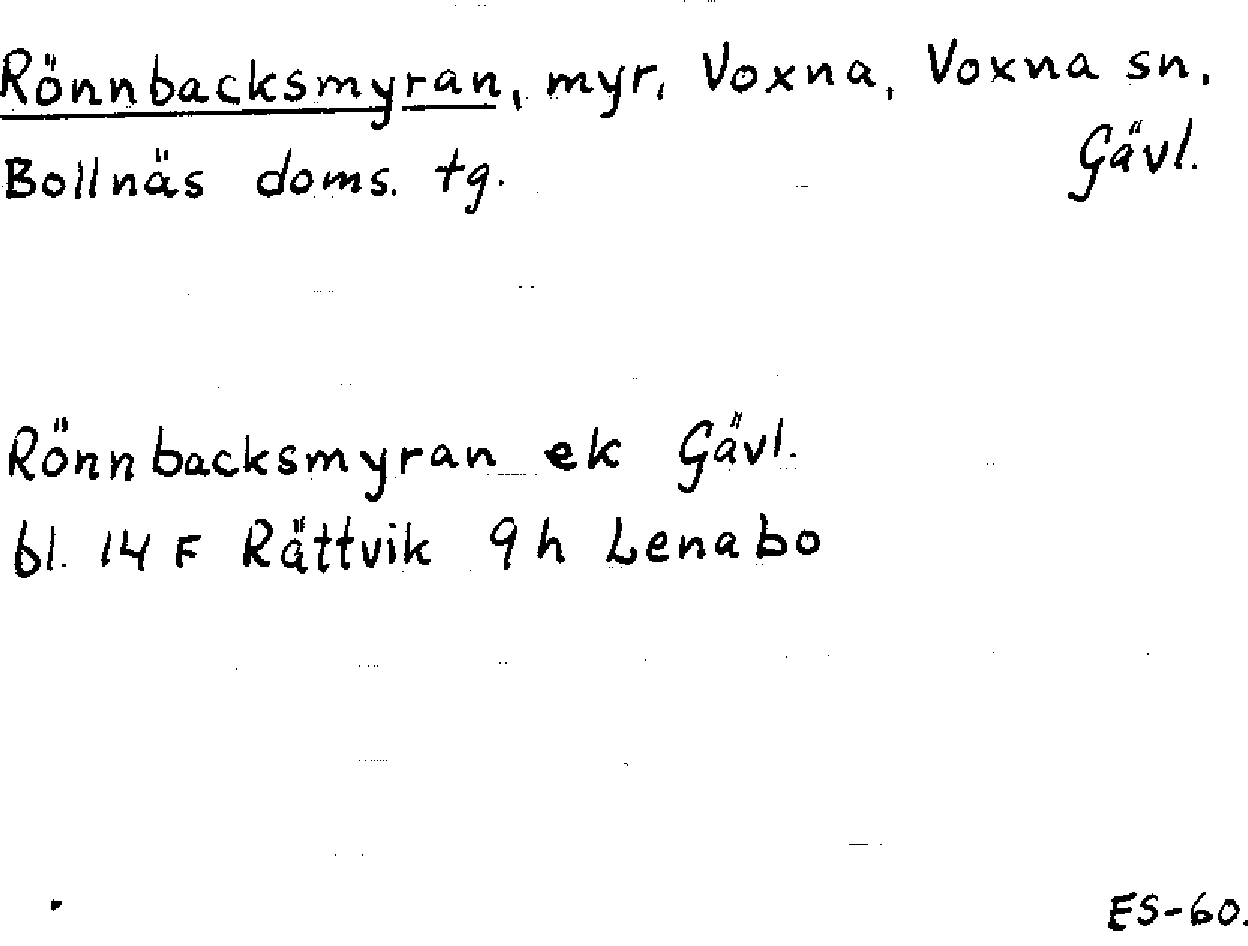 Rönnbacksmyran, myr, Voxna, Voxna sn.
Bollnäs doms. tg. Gävl.
Rönnbacksmyran ek Gävl.
bl. 14 F Rättvik 9h Lenabo
ES-60.